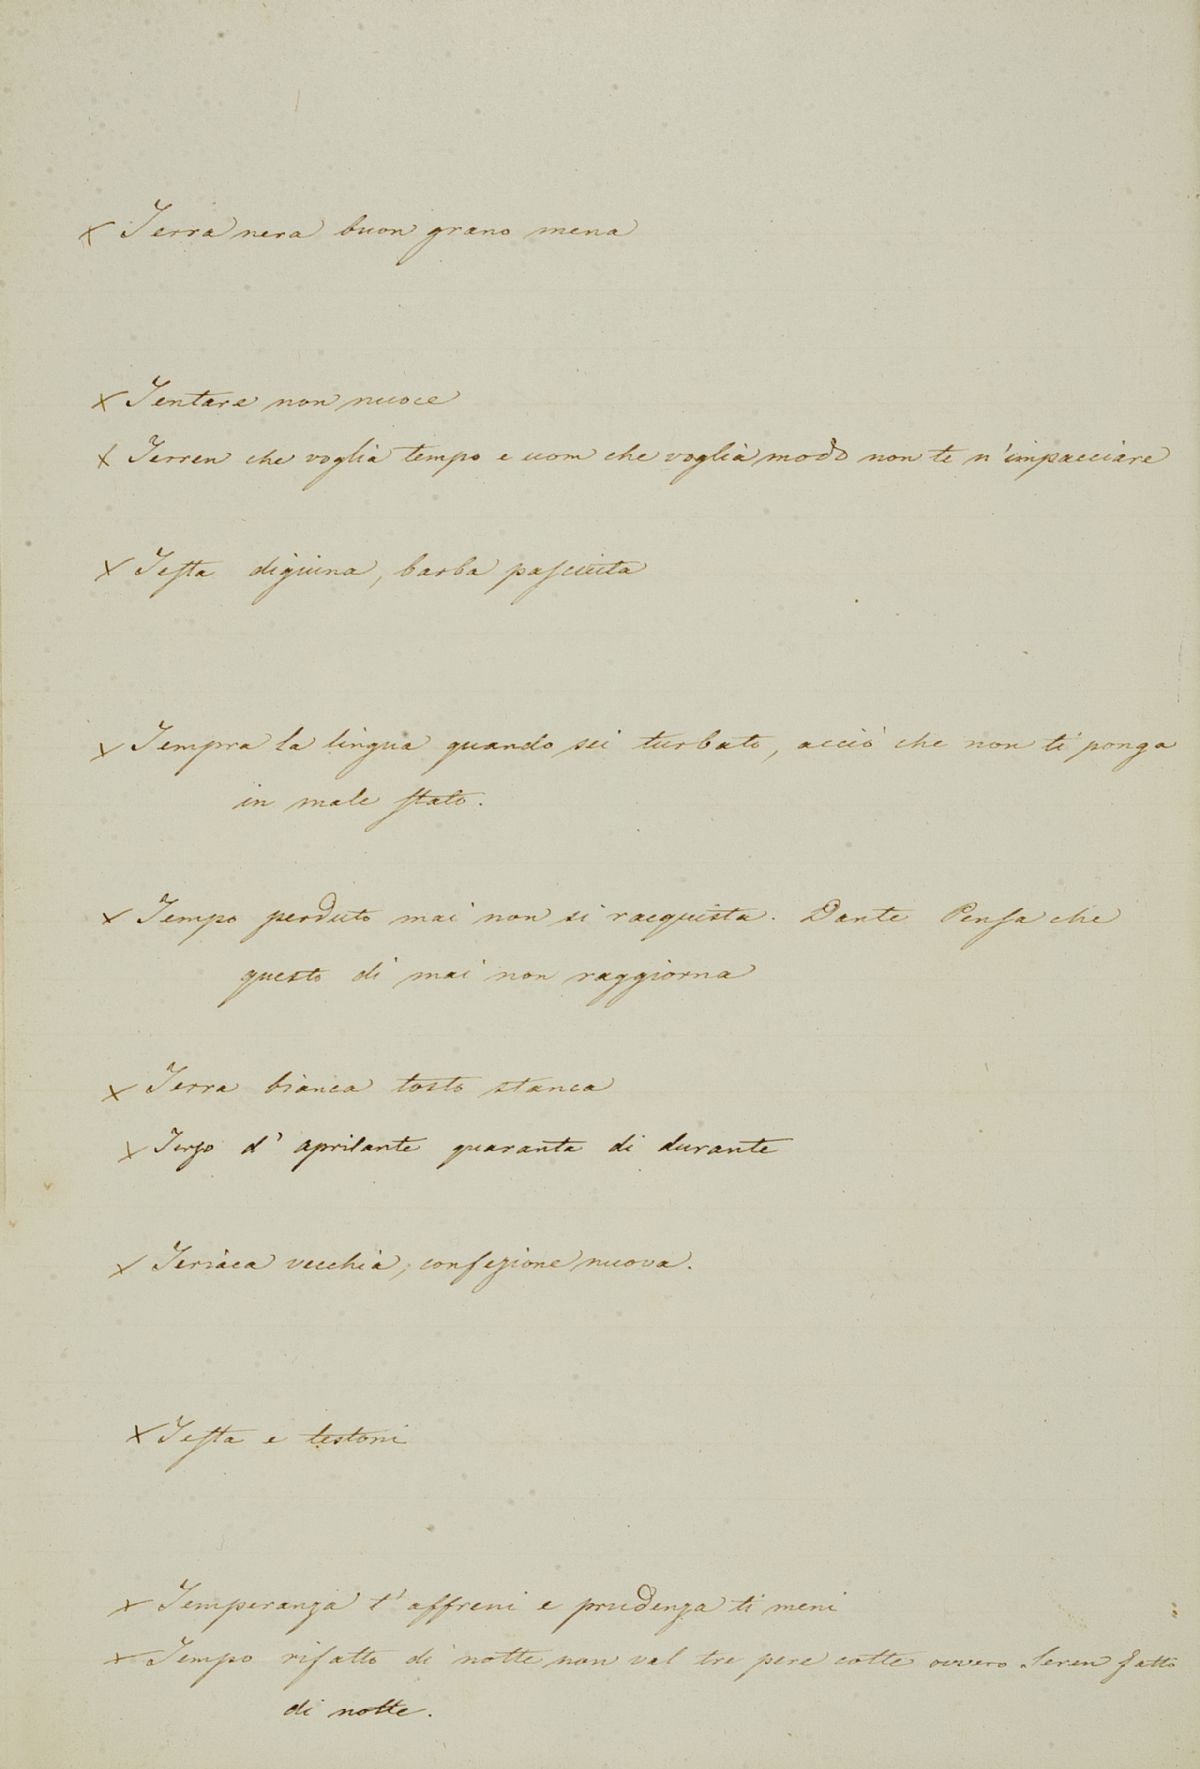 x Terra nera buon grano mena
x Tentare non nuoce
x Terren che voglia tempo e uom che voglia modo non te n'impacciare
x Testa digiuna, barba pasciuta
x Tempra la lingua quando sei turbato, acciò che non ti ponga
in male stato.
x Tempo perduto mai non si racquista. Dante Pensa che
questo di mai non raggiorna
x Terra bianca tosto stanca
x Terzo d'aprilante quaranta di durante
x Teriaca vecchia, confezione nuova.
x Testa e testoni
x Temperanza t'affreni e prudenza ti meni
x Tempo rifatto di notte non val tre pere cotte ovvero Seren fatto
di notte.